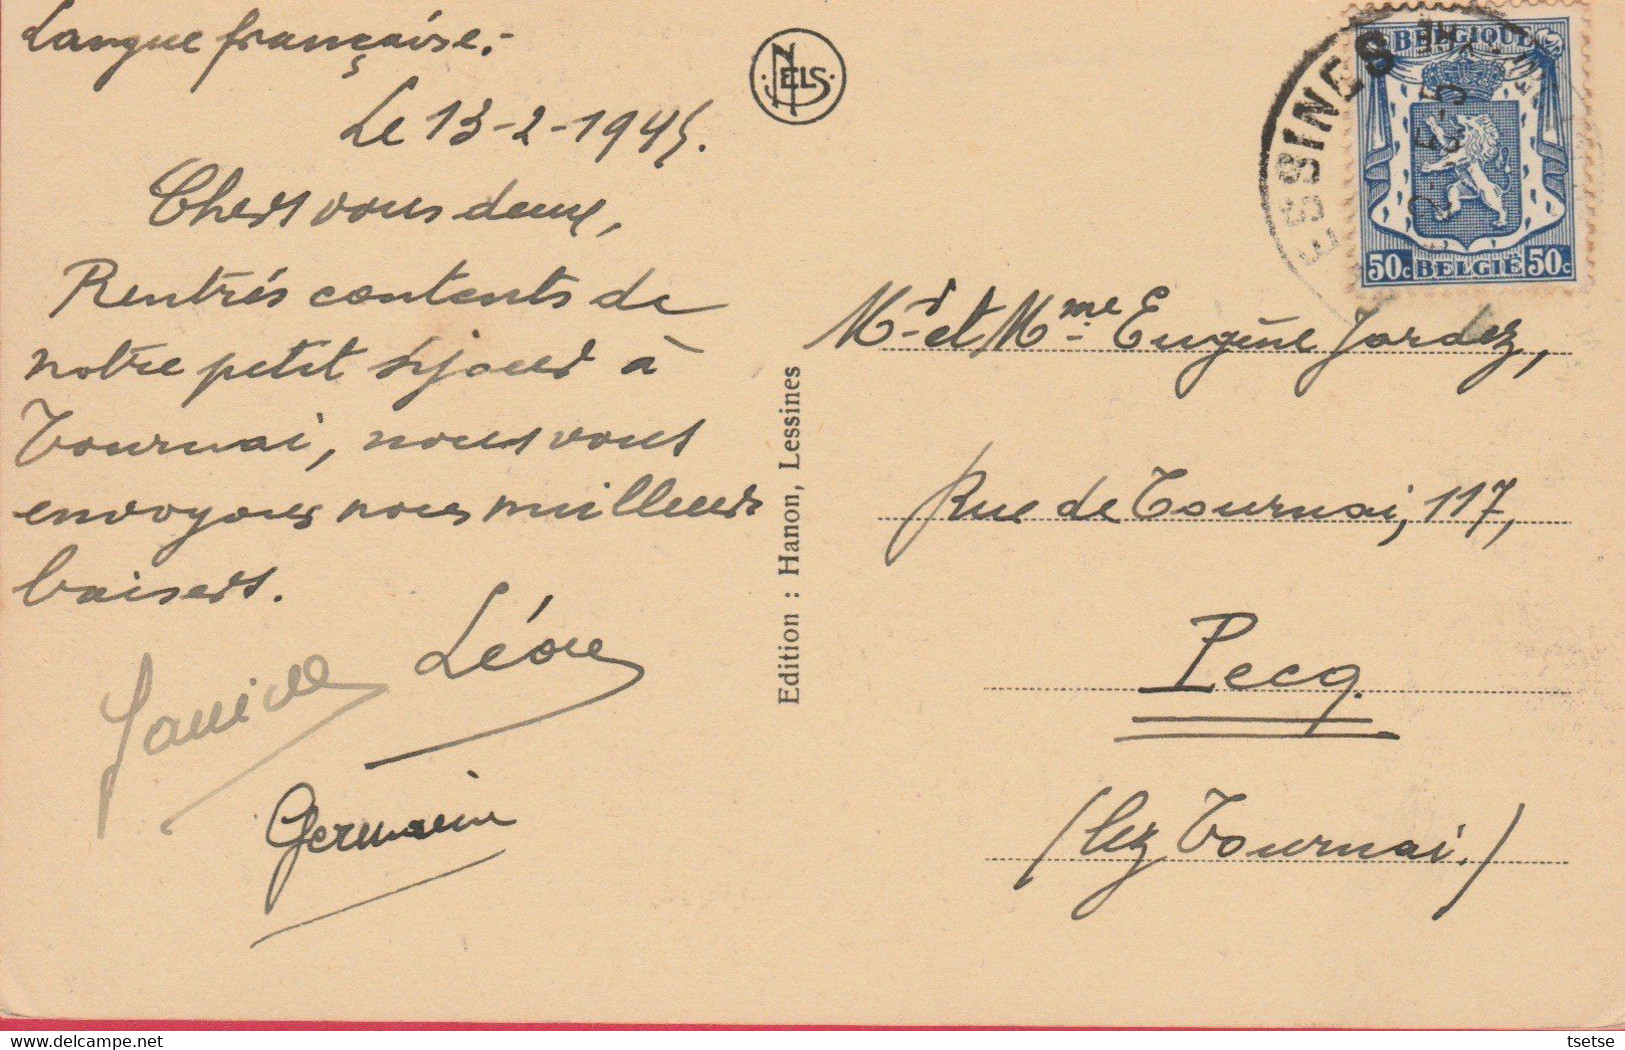 Langue française.-
Le 13-2-1945.
Chers vous deux,
Rentrés contents de
notre petit séjour à
Tournai, nous vous
envoyons nos meilleurs
baisers.
Léon
Germain
NELS
Edition : Hanon, Lessines
BELGIQUE
50c BELGIË 50c
LESSINES
Mr et Mme Eugène Jardez,
Rue de Tournai, 117,
Pecq.
(lez Tournai.)
tsetse